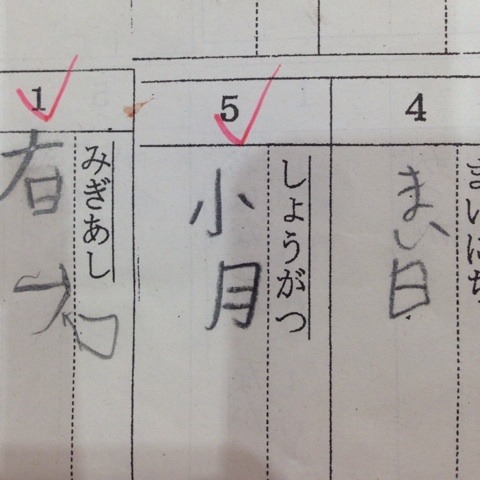 4
まいにち
まい日
5
しょうがつ
小月
1
みぎあし